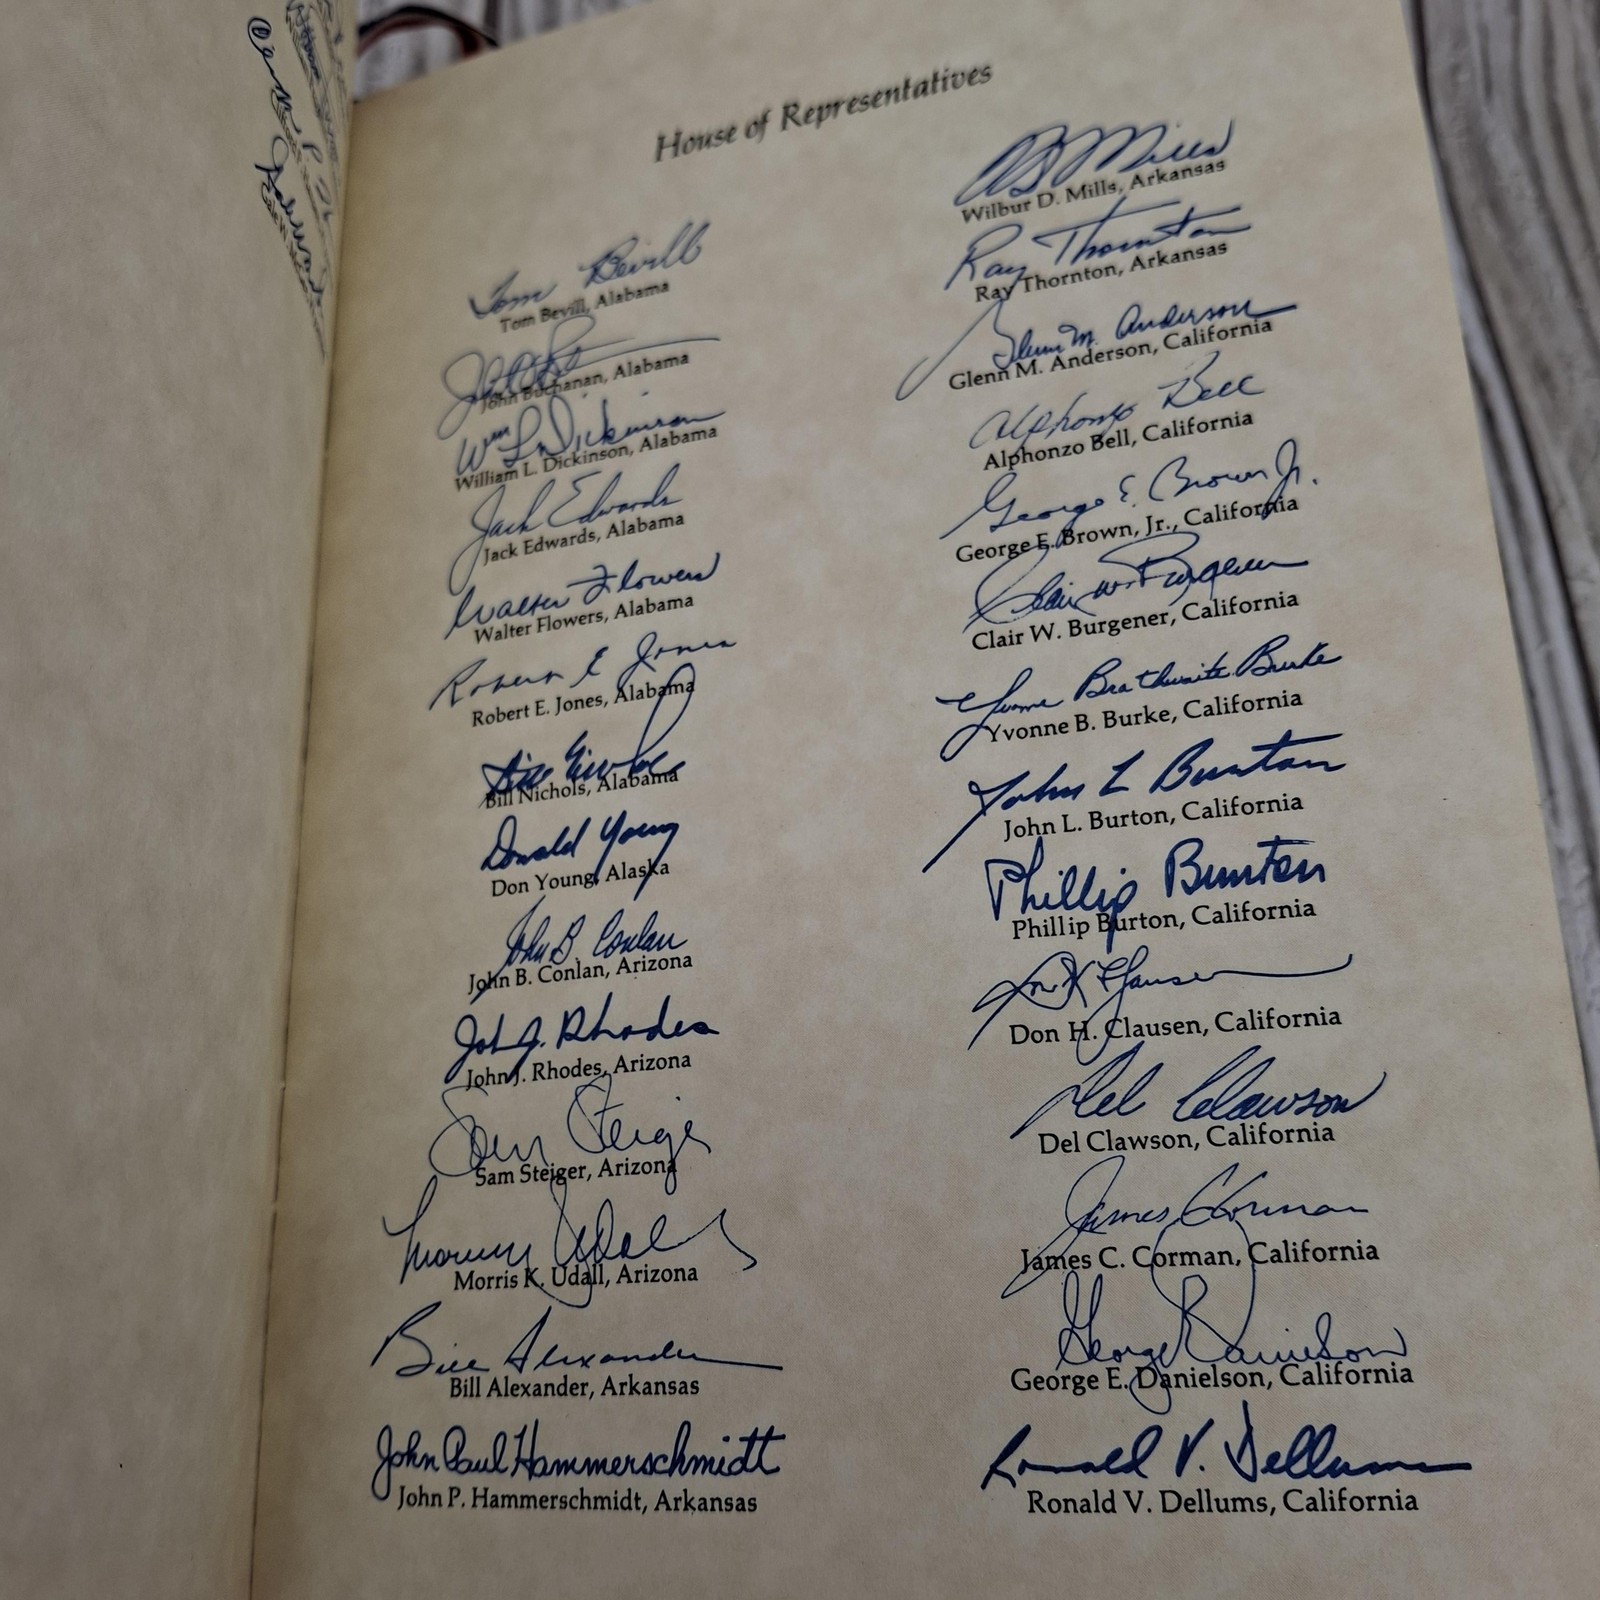 House of Representatives
Tom Bevill
Tom Bevill, Alabama
John Buchanan, Alabama
Wm L Dickinson
William L. Dickinson, Alabama
Jack Edwards
Jack Edwards, Alabama
Walter Flowers
Walter Flowers, Alabama
Robert E Jones
Robert E. Jones, Alabama
Bill Nichols
Bill Nichols, Alabama
Donald Young
Don Young, Alaska
John B. Conlan
John B. Conlan, Arizona
John J. Rhodes
John J. Rhodes, Arizona
Sam Steiger
Sam Steiger, Arizona
Morris Udall
Morris K. Udall, Arizona
Bill Alexander
Bill Alexander, Arkansas
John Paul Hammerschmidt
John P. Hammerschmidt, Arkansas
WD Mills
Wilbur D. Mills, Arkansas
Ray Thornton
Ray Thornton, Arkansas
Glenn M. Anderson
Glenn M. Anderson, California
Alphonzo Bell
Alphonzo Bell, California
George E. Brown Jr.
George E. Brown, Jr., California
Clair W. Burgener
Clair W. Burgener, California
Yvonne Brathwaite Burke
Yvonne B. Burke, California
John L Burton
John L. Burton, California
Phillip Burton
Phillip Burton, California
Don H Clausen
Don H. Clausen, California
Del Clawson
Del Clawson, California
James C Corman
James C. Corman, California
George E Danielson
George E. Danielson, California
Ronald V. Dellums
Ronald V. Dellums, California